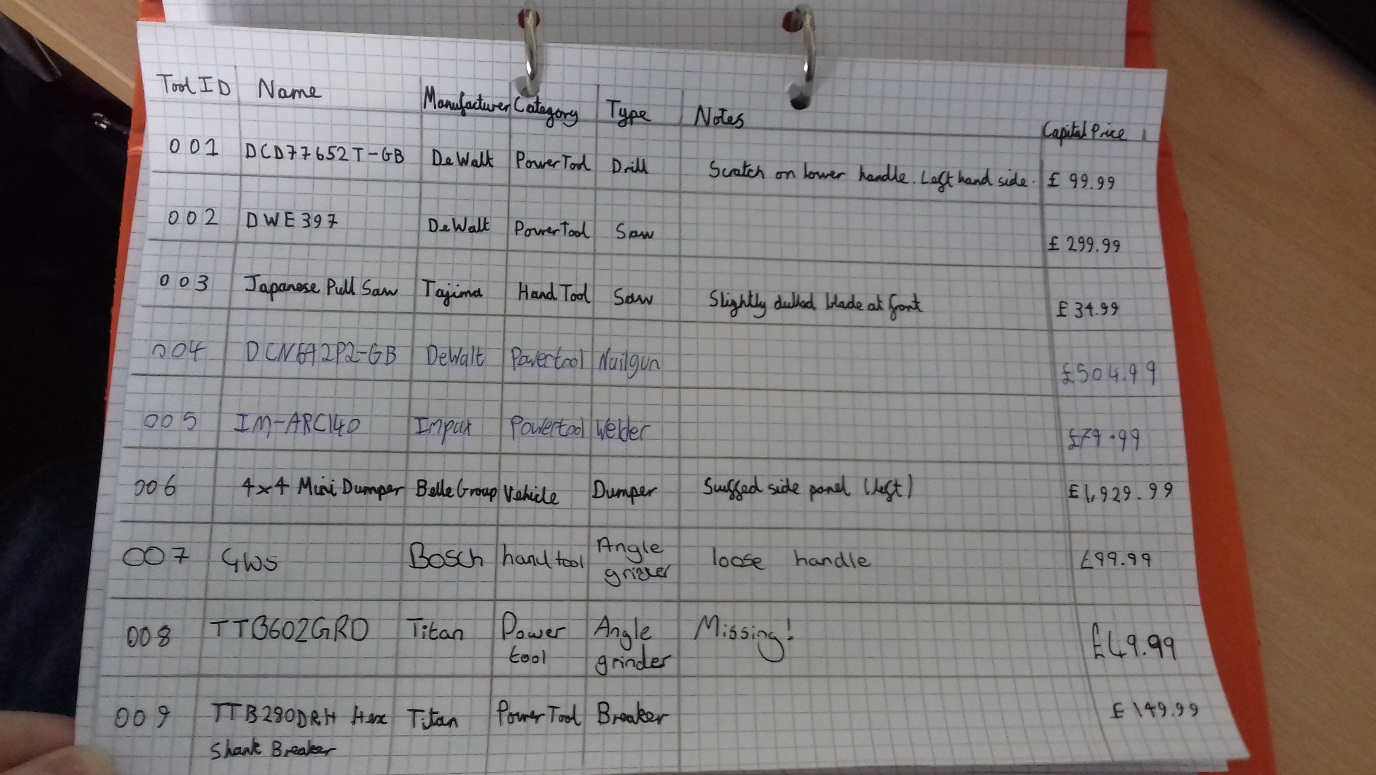 Tool ID Name Manufacturer Category Type Notes Capital Price
001 DCD77652T-GB DeWalt PowerTool Drill Scratch on lower handle. Left hand side. £ 99.99
002 DWE397 DeWalt PowerTool Saw £ 299.99
003 Japanese Pull Saw Tajima Hand Tool Saw Slightly dulled blade at font £ 34.99
004 DeWalt Powertool Nailgun £504.99
005 IM-ARC140 Impax Powertool Welder £79.99
006 4x4 Mini Dumper Belle Group Vehicle Dumper side panel (left) £1,929.99
007 GWS Bosch hand tool Angle loose handle £99.99
008 TTB602GRD Titan Power Angle Missing! £49.99
tool grinder
009 TTB280DRH Hex Titan PowerTool Breaker £149.99
Shank Breaker